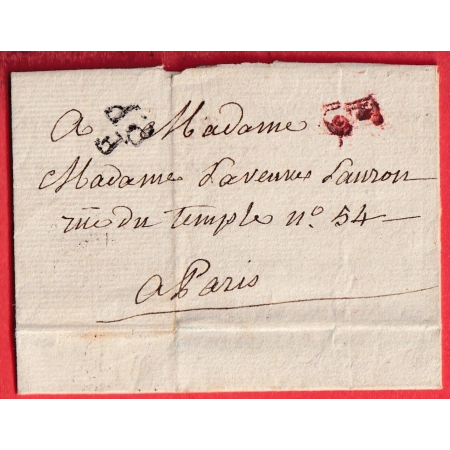 A Madame
Madame Laveuve Lauron
rüe du temple n° 54
A Paris